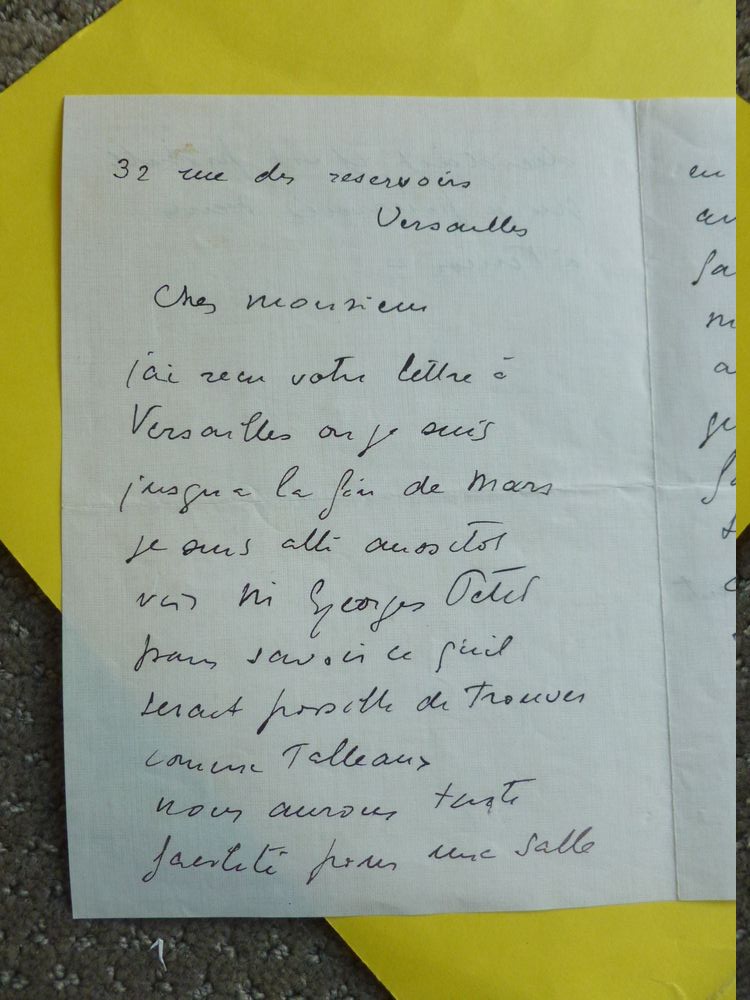 32 rue des reservoirs
Versailles
Cher monsieur
j'ai recu votre lettre à
Versailles ou je suis
jusqu'a la fin de Mars
je suis allé aussitot
voir Mr Georges Petit
pour savoir ce qu'il
serait possible de trouver
comme Tableaux
nous aurons toute
facilité pour une salle
en